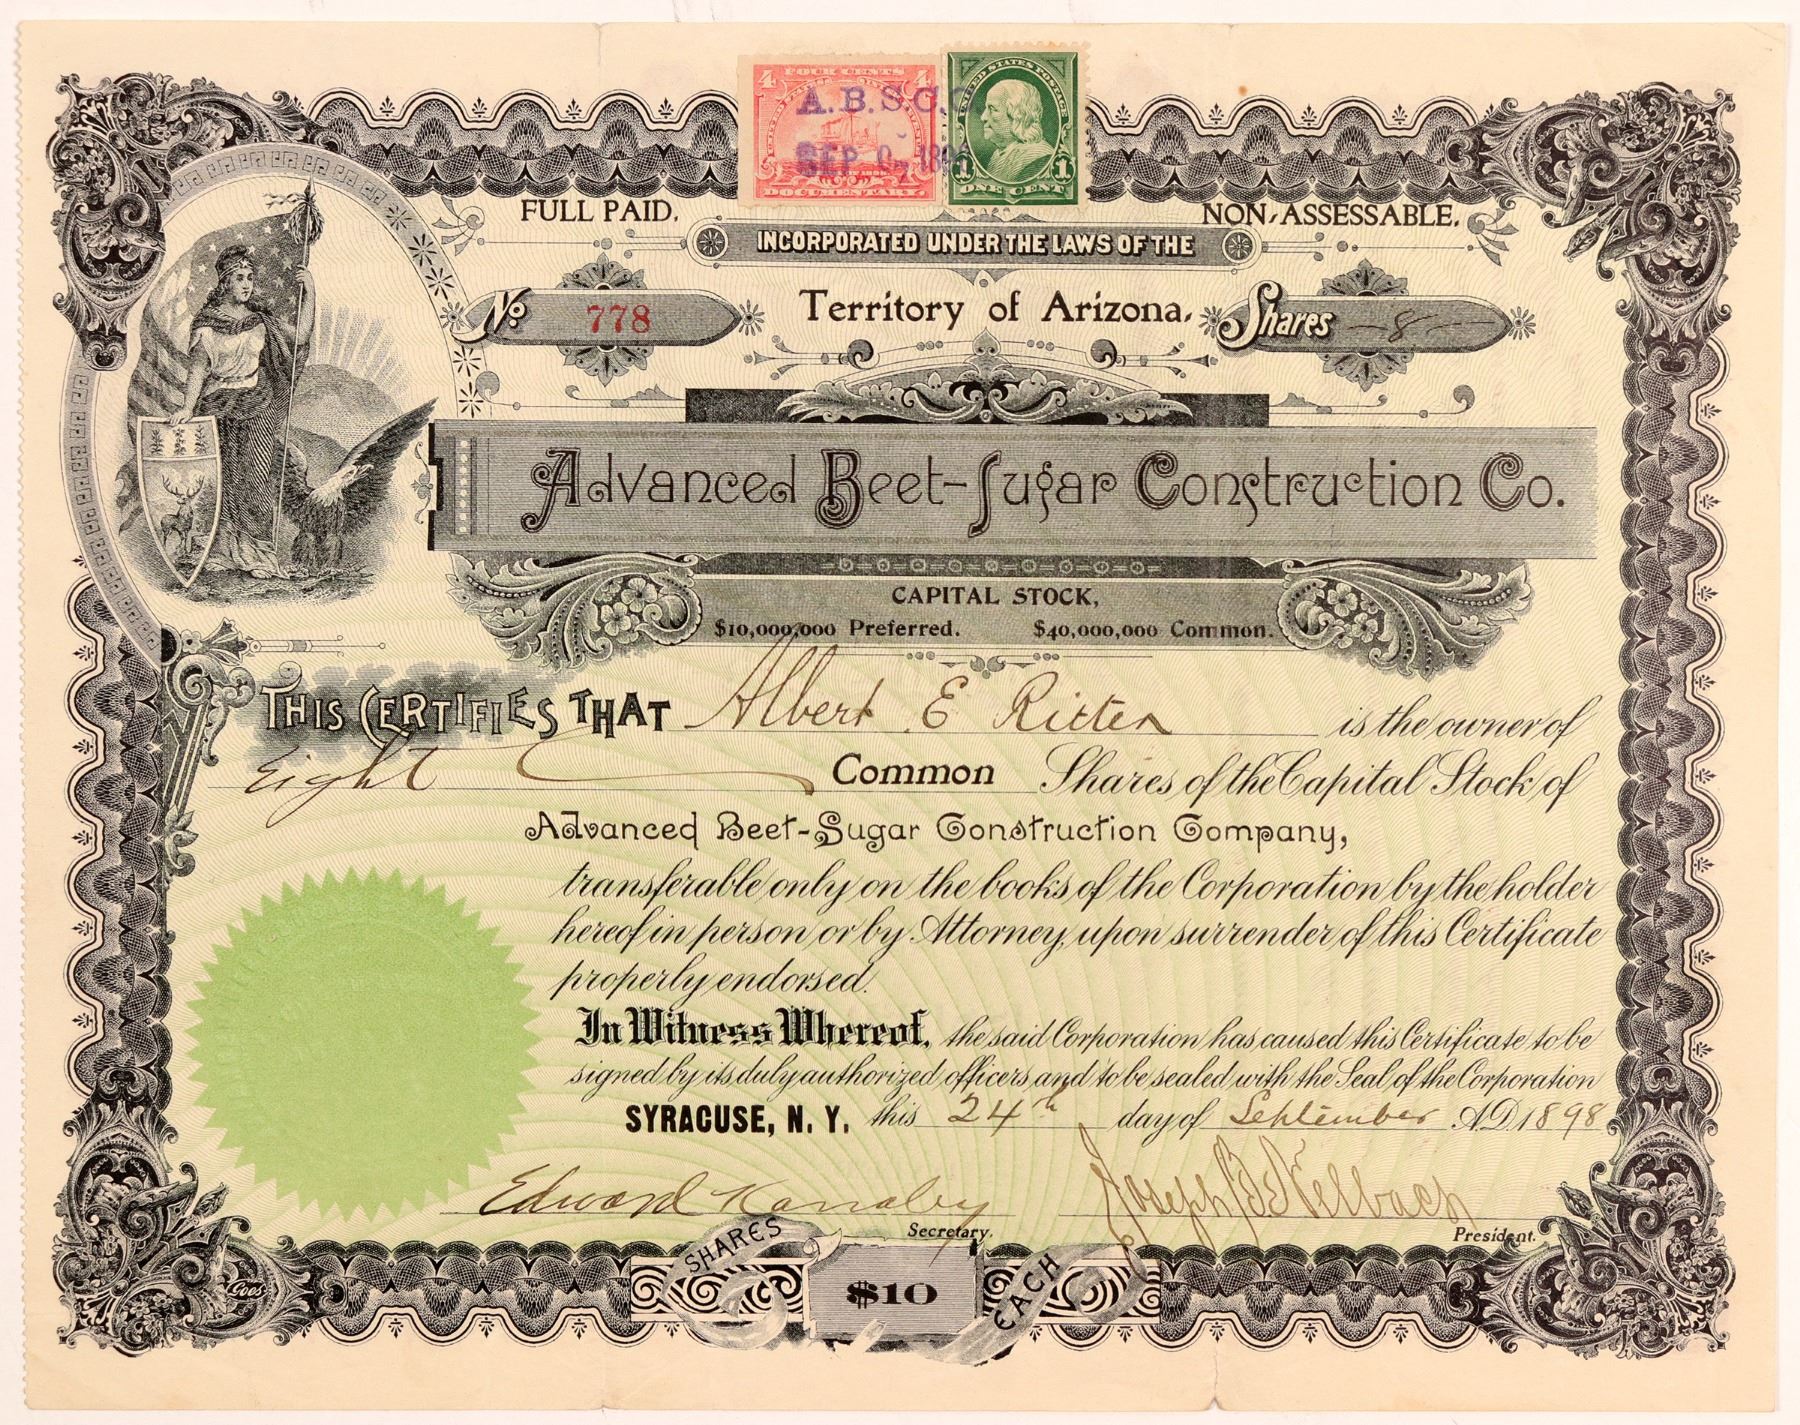 FOUR CENTS
4 4
DOCUMENTARY.
UNITED STATES POSTAGE
1 1
ONE CENT
A.B.S.C.
SEP
FULL PAID.
NON-ASSESSABLE.
INCORPORATED UNDER THE LAWS OF THE
No. 778
Territory of Arizona.
Shares 8
Advanced Beet-Sugar Construction Co.
CAPITAL STOCK,
$10,000,000 Preferred. $40,000,000 Common.
THIS CERTIFIES THAT Albert E Ritter is the owner of
Eight Common Shares of the Capital Stock of
Advanced Beet-Sugar Construction Company,
transferable only on the books of the Corporation by the holder
hereof in person or by Attorney, upon surrender of this Certificate
properly endorsed.
In Witness Whereof, the said Corporation has caused this Certificate to be
signed by its duly authorized officers and to be sealed with the Seal of the Corporation
SYRACUSE, N. Y. this 24th day of September A.D. 1898
Edward Joseph
Secretary.
President.
SHARES $10 EACH
Goes